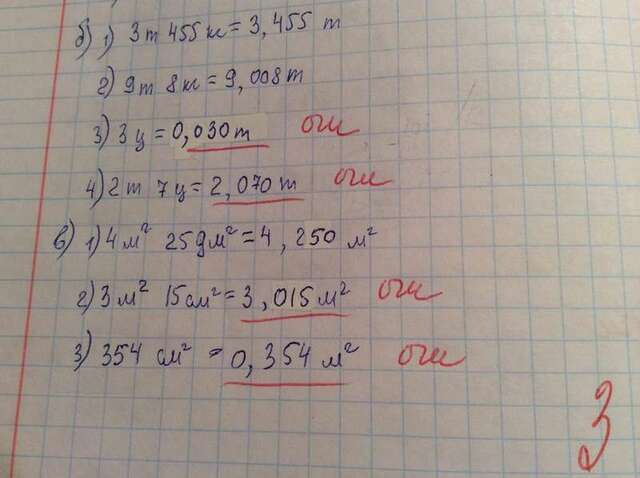 б) 1) 3т 455 кг = 3, 455 т
2) 9т 8 кг = 9, 008 т
3) 3 ц = 0,030 т ош
4) 2т 7 ц = 2, 070 т ош
в) 1) 4 м² 25 дм² = 4, 250 м²
2) 3 м² 15 см² = 3, 015 м² ош
3) 354 см² = 0, 354 м² ош
3